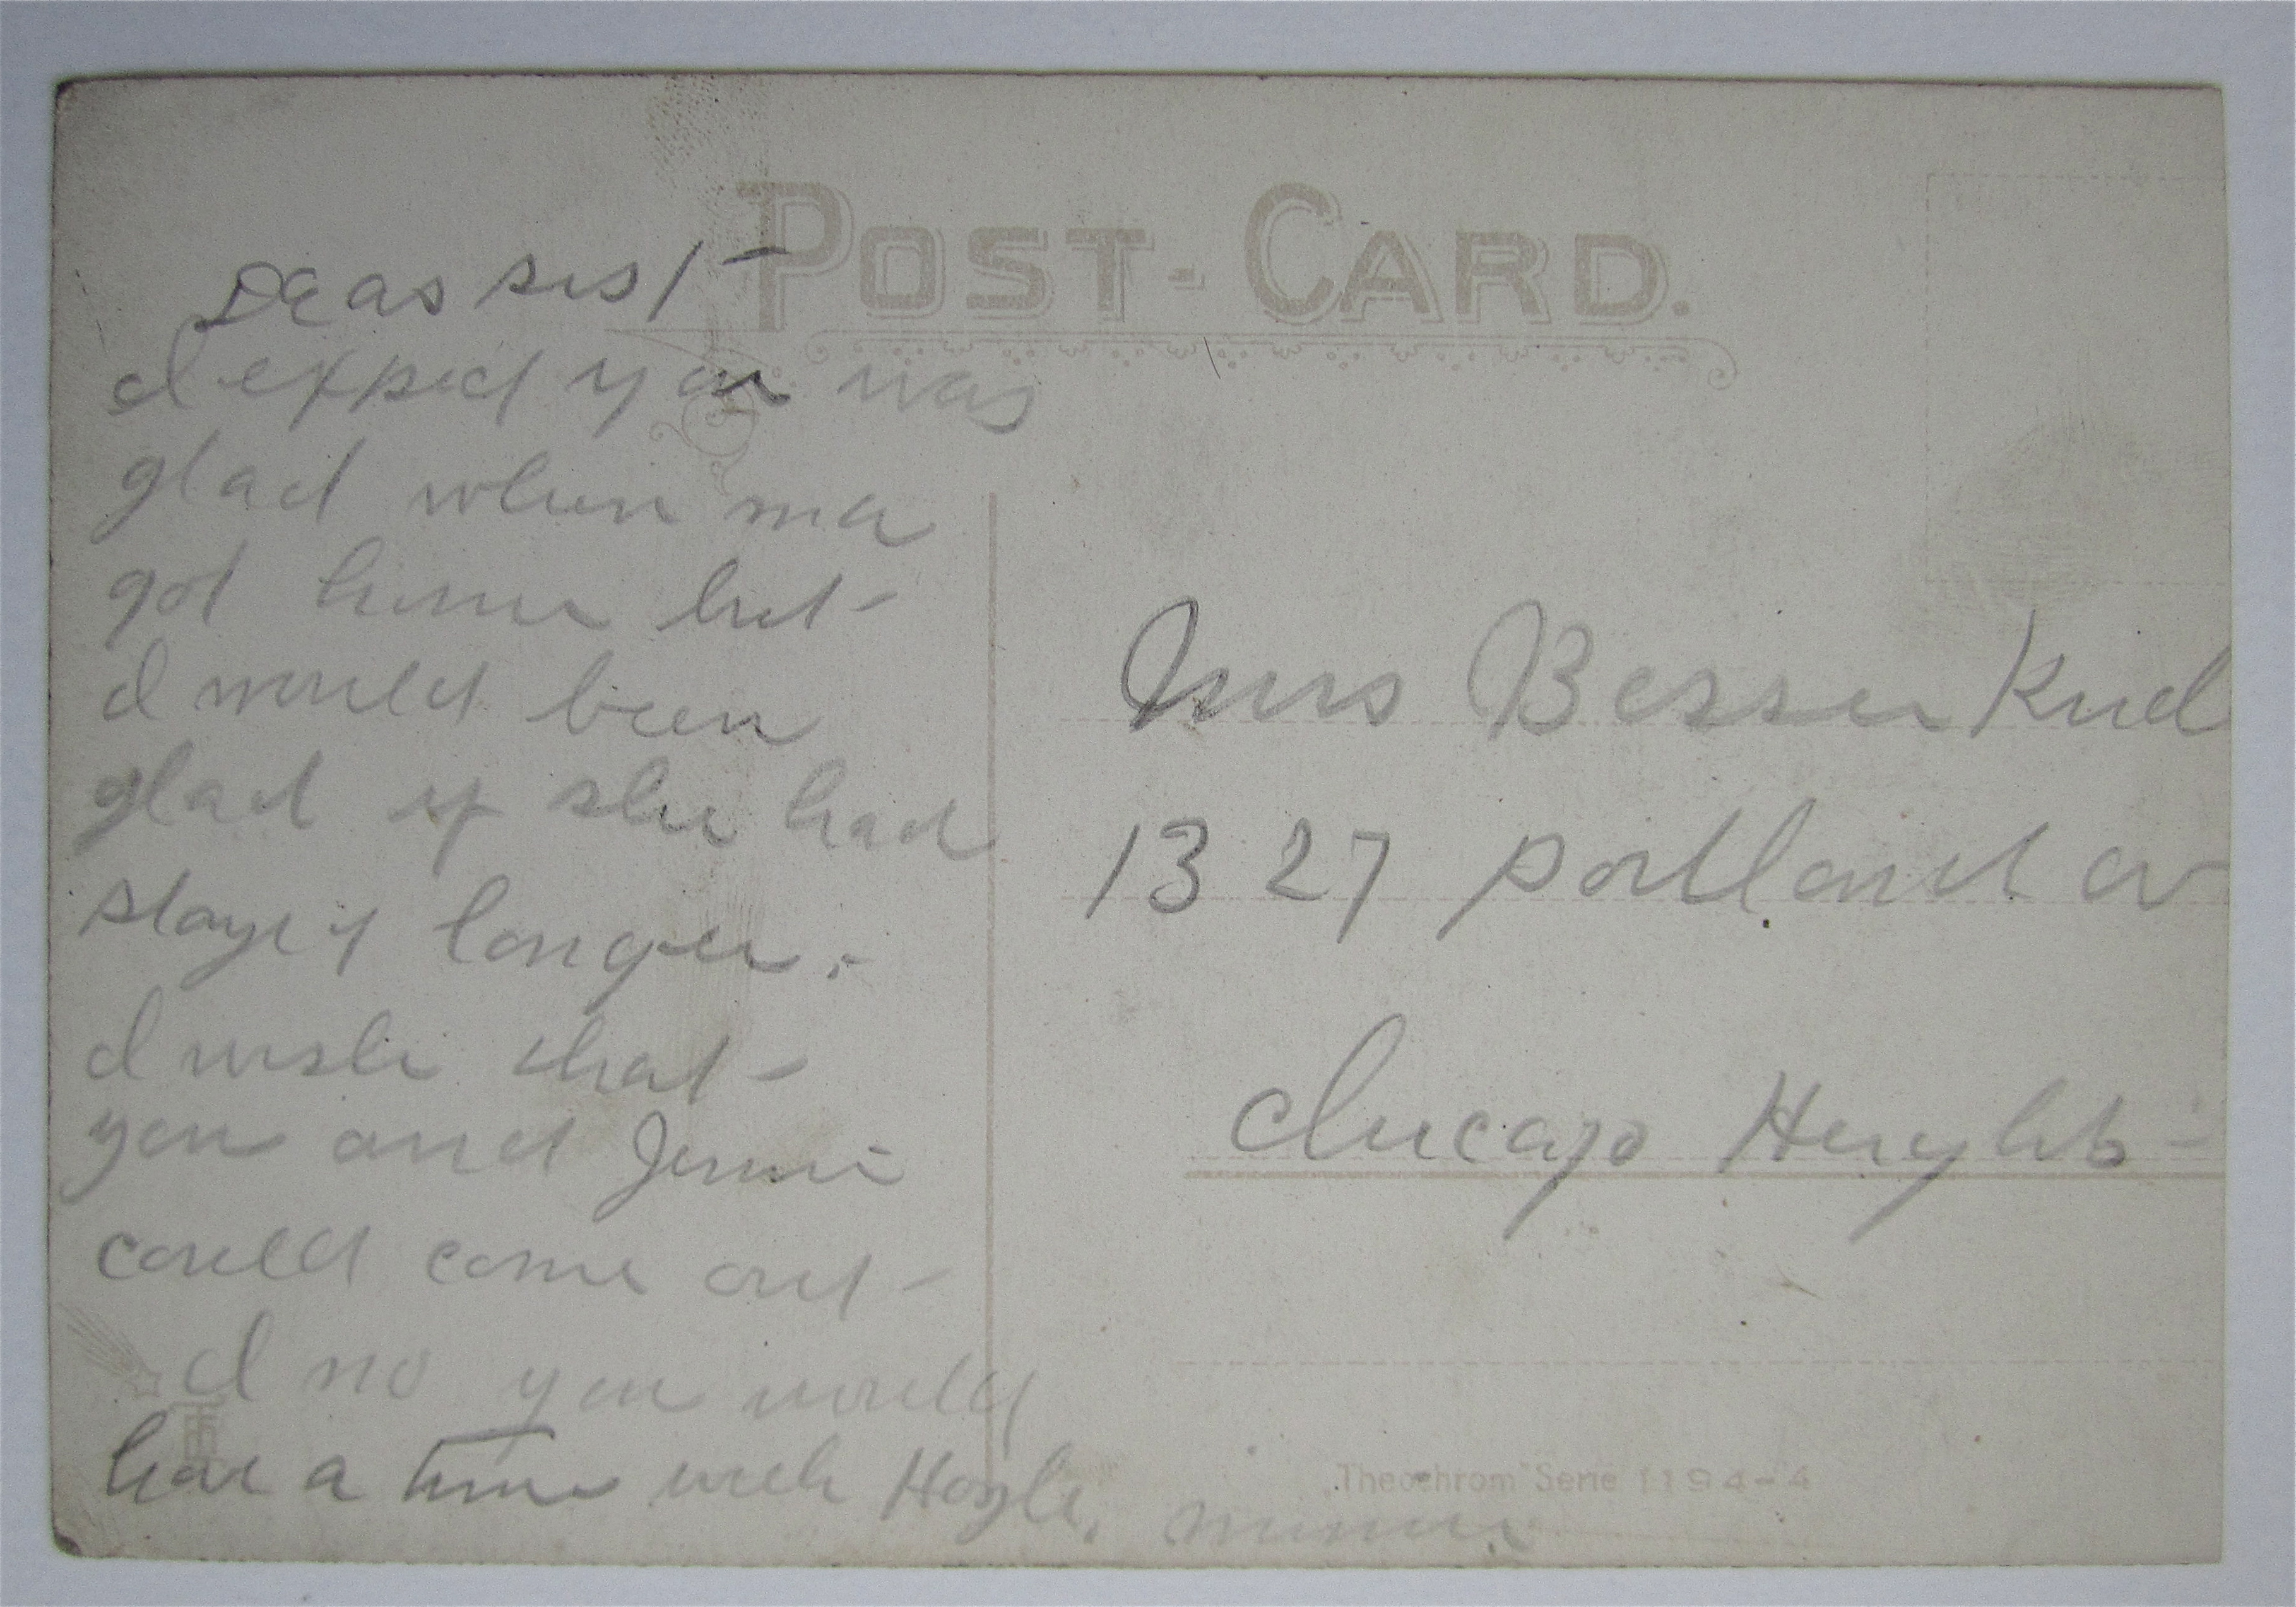 POST-CARD.
Dear sist
I expect you was
glad when ma
got home but
I would been
glad if she had
stayed longer.
I wish that
you and Jennie
could come out
I no you would
have a time with Hoyle.
Minnie
Mrs Bessie Kid
1327 Portland av
Chicago Heights
"Theochrom" Serie 1194-4